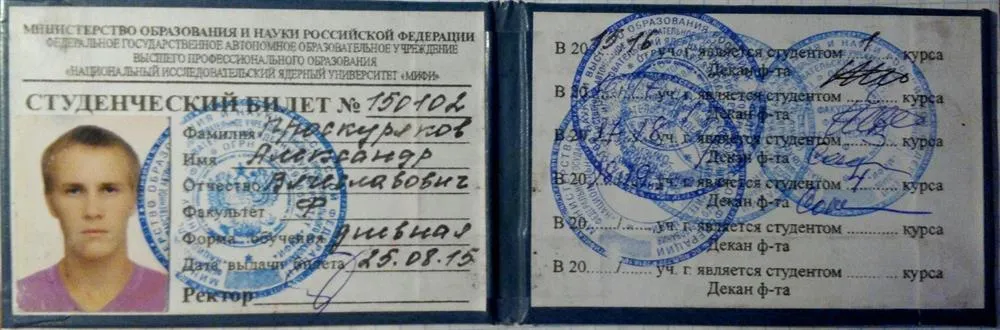 МИНИСТЕРСТВО ОБРАЗОВАНИЯ И НАУКИ РОССИЙСКОЙ ФЕДЕРАЦИИ
ФЕДЕРАЛЬНОЕ ГОСУДАРСТВЕННОЕ АВТОНОМНОЕ ОБРАЗОВАТЕЛЬНОЕ УЧРЕЖДЕНИЕ
ВЫСШЕГО ПРОФЕССИОНАЛЬНОГО ОБРАЗОВАНИЯ
«НАЦИОНАЛЬНЫЙ ИССЛЕДОВАТЕЛЬСКИЙ ЯДЕРНЫЙ УНИВЕРСИТЕТ «МИФИ»
СТУДЕНЧЕСКИЙ БИЛЕТ № 150102
Фамилия Проскуряков
Имя Александр
Отчество Вячеславович
Факультет Ф
Форма обучения дневная
Дата выдачи билета 25.08.15
Ректор
В 2015/16 уч. г. является студентом 1 курса
Декан ф-та
В 20 уч. г. является студентом курса
Декан ф-та
В 2017/18 уч. г. является студентом курса
Декан ф-та
В 2018/19 уч. г. является студентом 4 курса
Декан ф-та
В 20 / уч. г. является студентом курса
Декан ф-та
В 20 / уч. г. является студентом курса
Декан ф-та